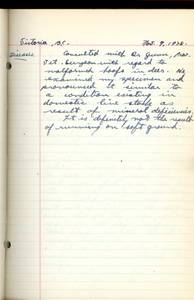 Victoria, B.C. Feb. 9, 1938.
Diseases Consulted with Dr Gunn, 
Vet. Surgeon with regard to
malformed hoofs in deer. He
examined my specimen and
pronounced it similar to
a condition existing in
domestic live stock as
result of mineral deficiencies.
It is definitely not the result
of running on soft ground.